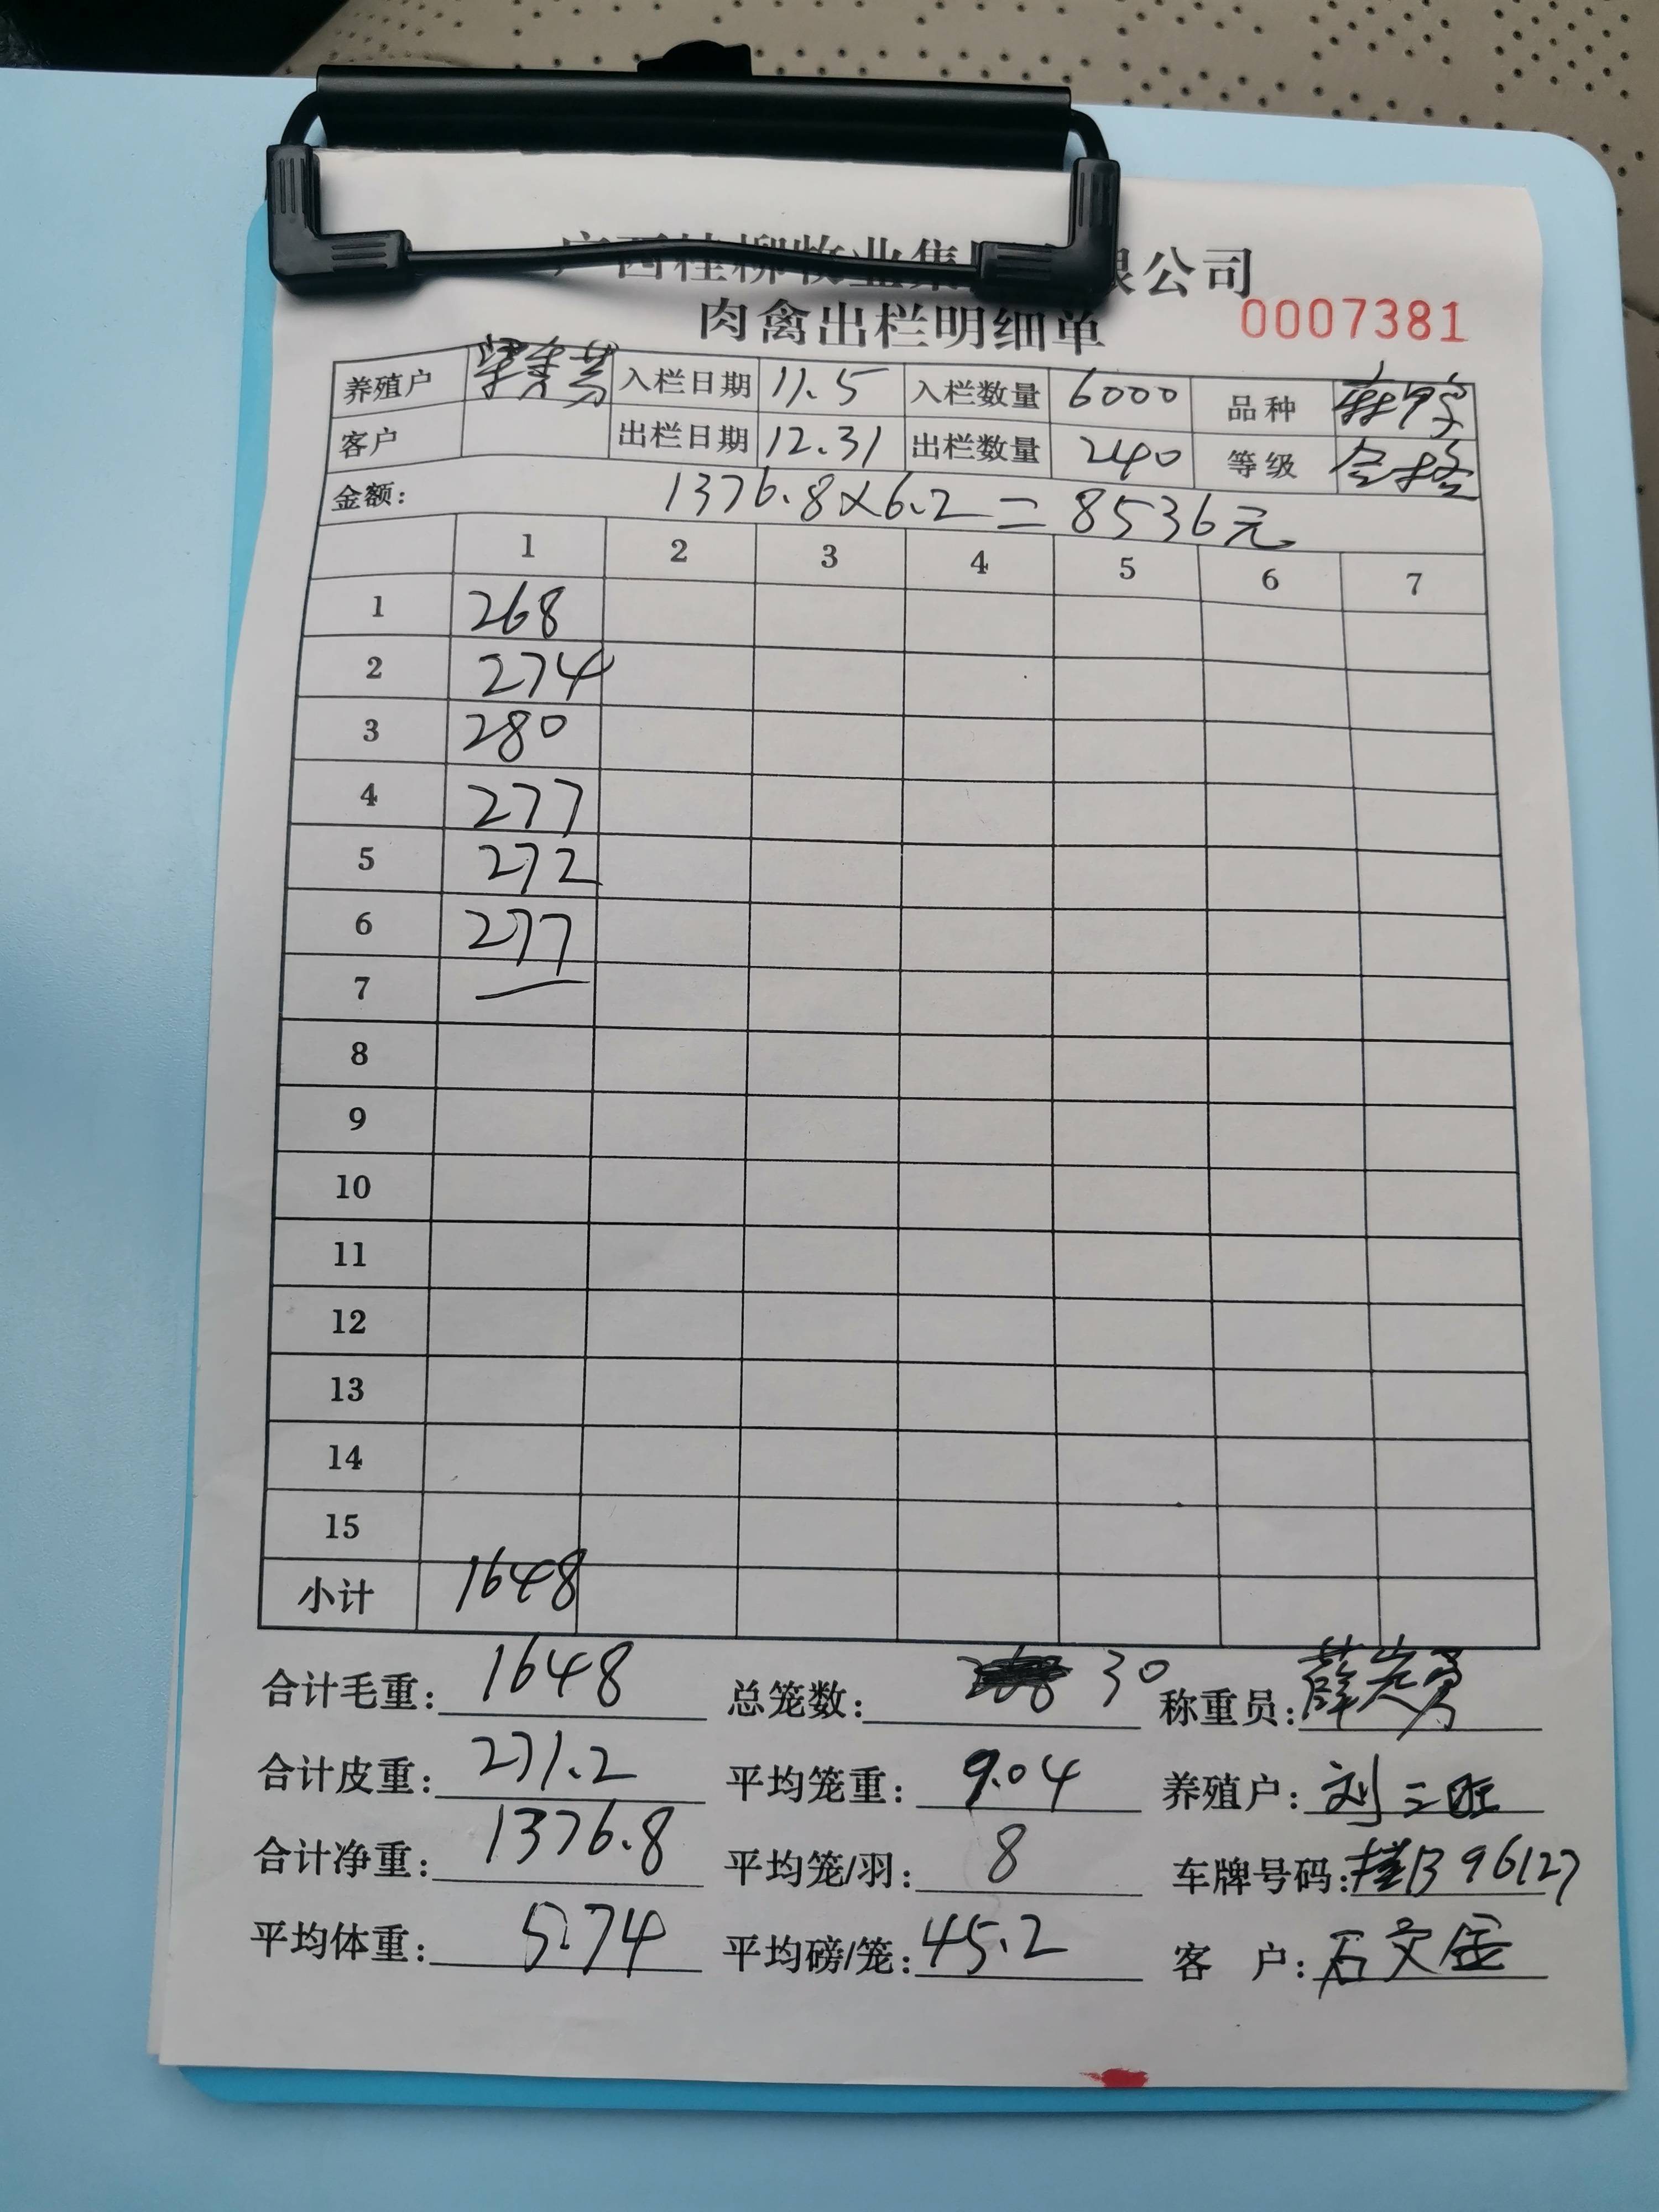 广西桂柳牧业集团有限公司
肉禽出栏明细单 0007381
养殖户 入栏日期 11.5 入栏数量 6000 品种
客户 出栏日期 12.31 出栏数量 240 等级 合格
金额: 1376.8×6.2=8536元
1 2 3 4 5 6 7
1 268
2 274
3 280
4 277
5 272
6 277
7
8
9
10
11
12
13
14
15
小计 1648
合计毛重: 1648 总笼数: 30 称重员:
合计皮重: 271.2 平均笼重: 9.04 养殖户: 刘二旺
合计净重: 1376.8 平均笼/羽: 8 车牌号码: 桂B96127
平均体重: 5.74 平均磅/笼: 45.2 客 户: 石文金